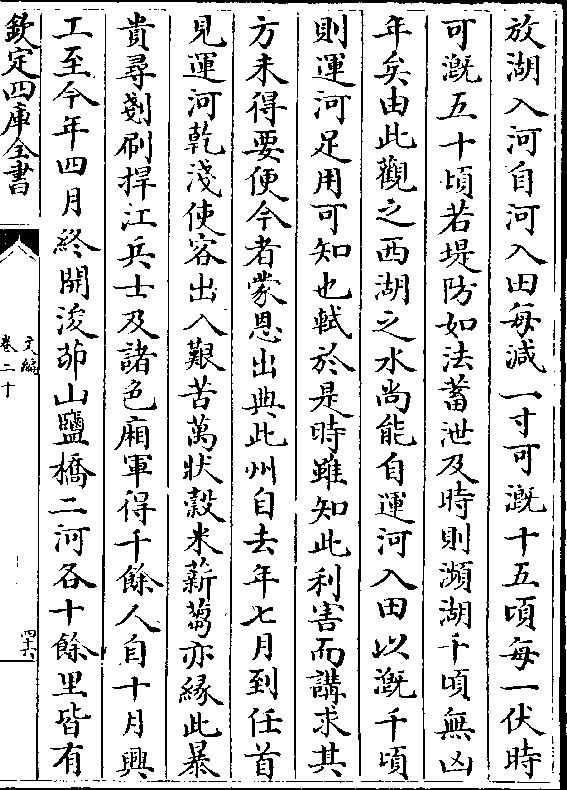 放湖入河自河入田每減一寸可漑十五頃每一伏時
可漑五十頃若堤防如法蓄泄及時則瀕湖千頃無凶
年矣由此觀之西湖之水尚能自運河入田以漑千頃
則運河足用可知也軾於是時雖知此利害而講求其
方未得要便今者蒙恩出典此州自去年七月到任首
見運河乾淺使客出入艱苦萬狀穀米薪芻亦緣此暴
貴尋剗刷捍江兵士及諸色廂軍得千餘人自十月興
工至今年四月終開浚茆山鹽橋二河各十餘里皆有
欽定四庫全書
文編
卷二十
四六